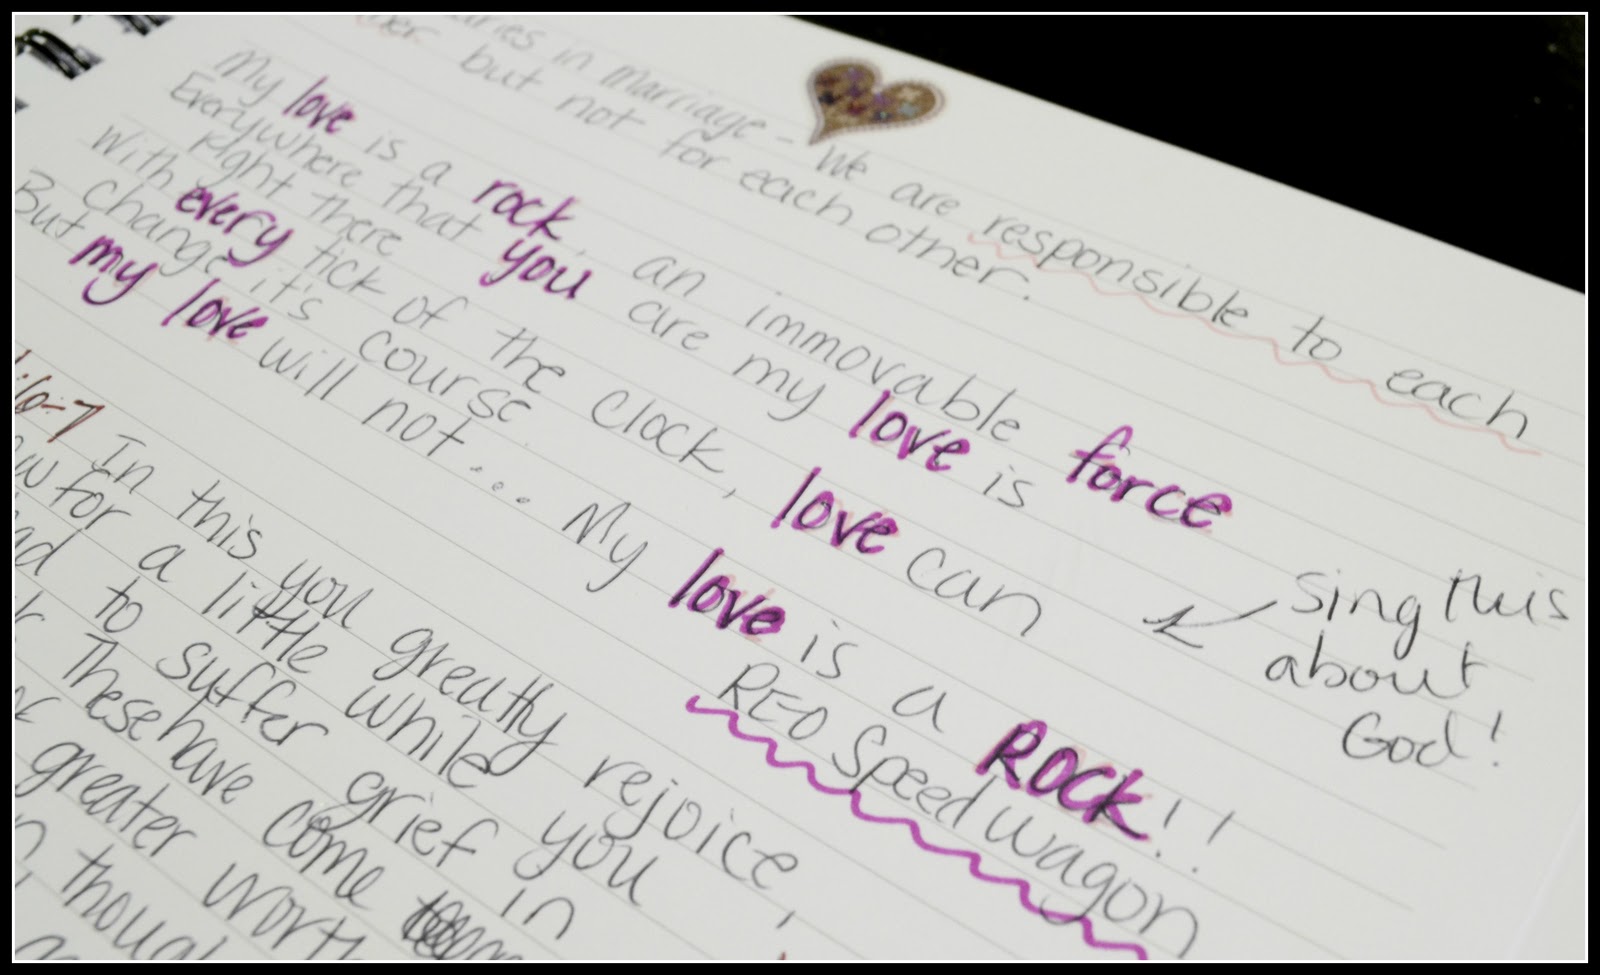 in Marriage - We are responsible to each
but not for each other.
My love is a rock, an immovable force
Everywhere that you are my love is
Right there
With every tick of the clock, love can
change it's course
But my love will not.... My love is a ROCK!!
REO Speedwagon
Sing this
about
God!
:6-7 In this you greatly rejoice,
for a little while you
to suffer grief in
These have come
of greater worth
though